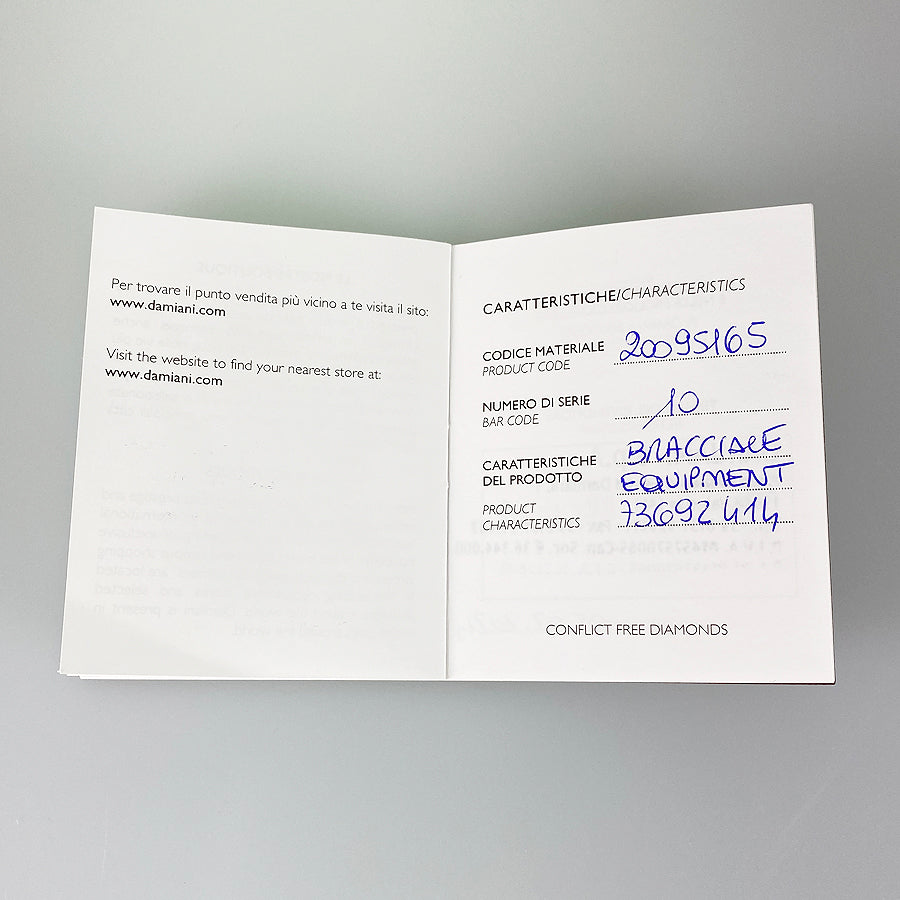 Per trovare il punto vendita più vicino a te visita il sito:
www.damiani.com
Visit the website to find your nearest store at:
www.damiani.com
CARATTERISTICHE/CHARACTERISTICS
CODICE MATERIALE 20095165
PRODUCT CODE
NUMERO DI SERIE 10
BAR CODE
BRACCIALE
CARATTERISTICHE
DEL PRODOTTO EQUIPMENT
PRODUCT 73692414
CHARACTERISTICS
CONFLICT FREE DIAMONDS